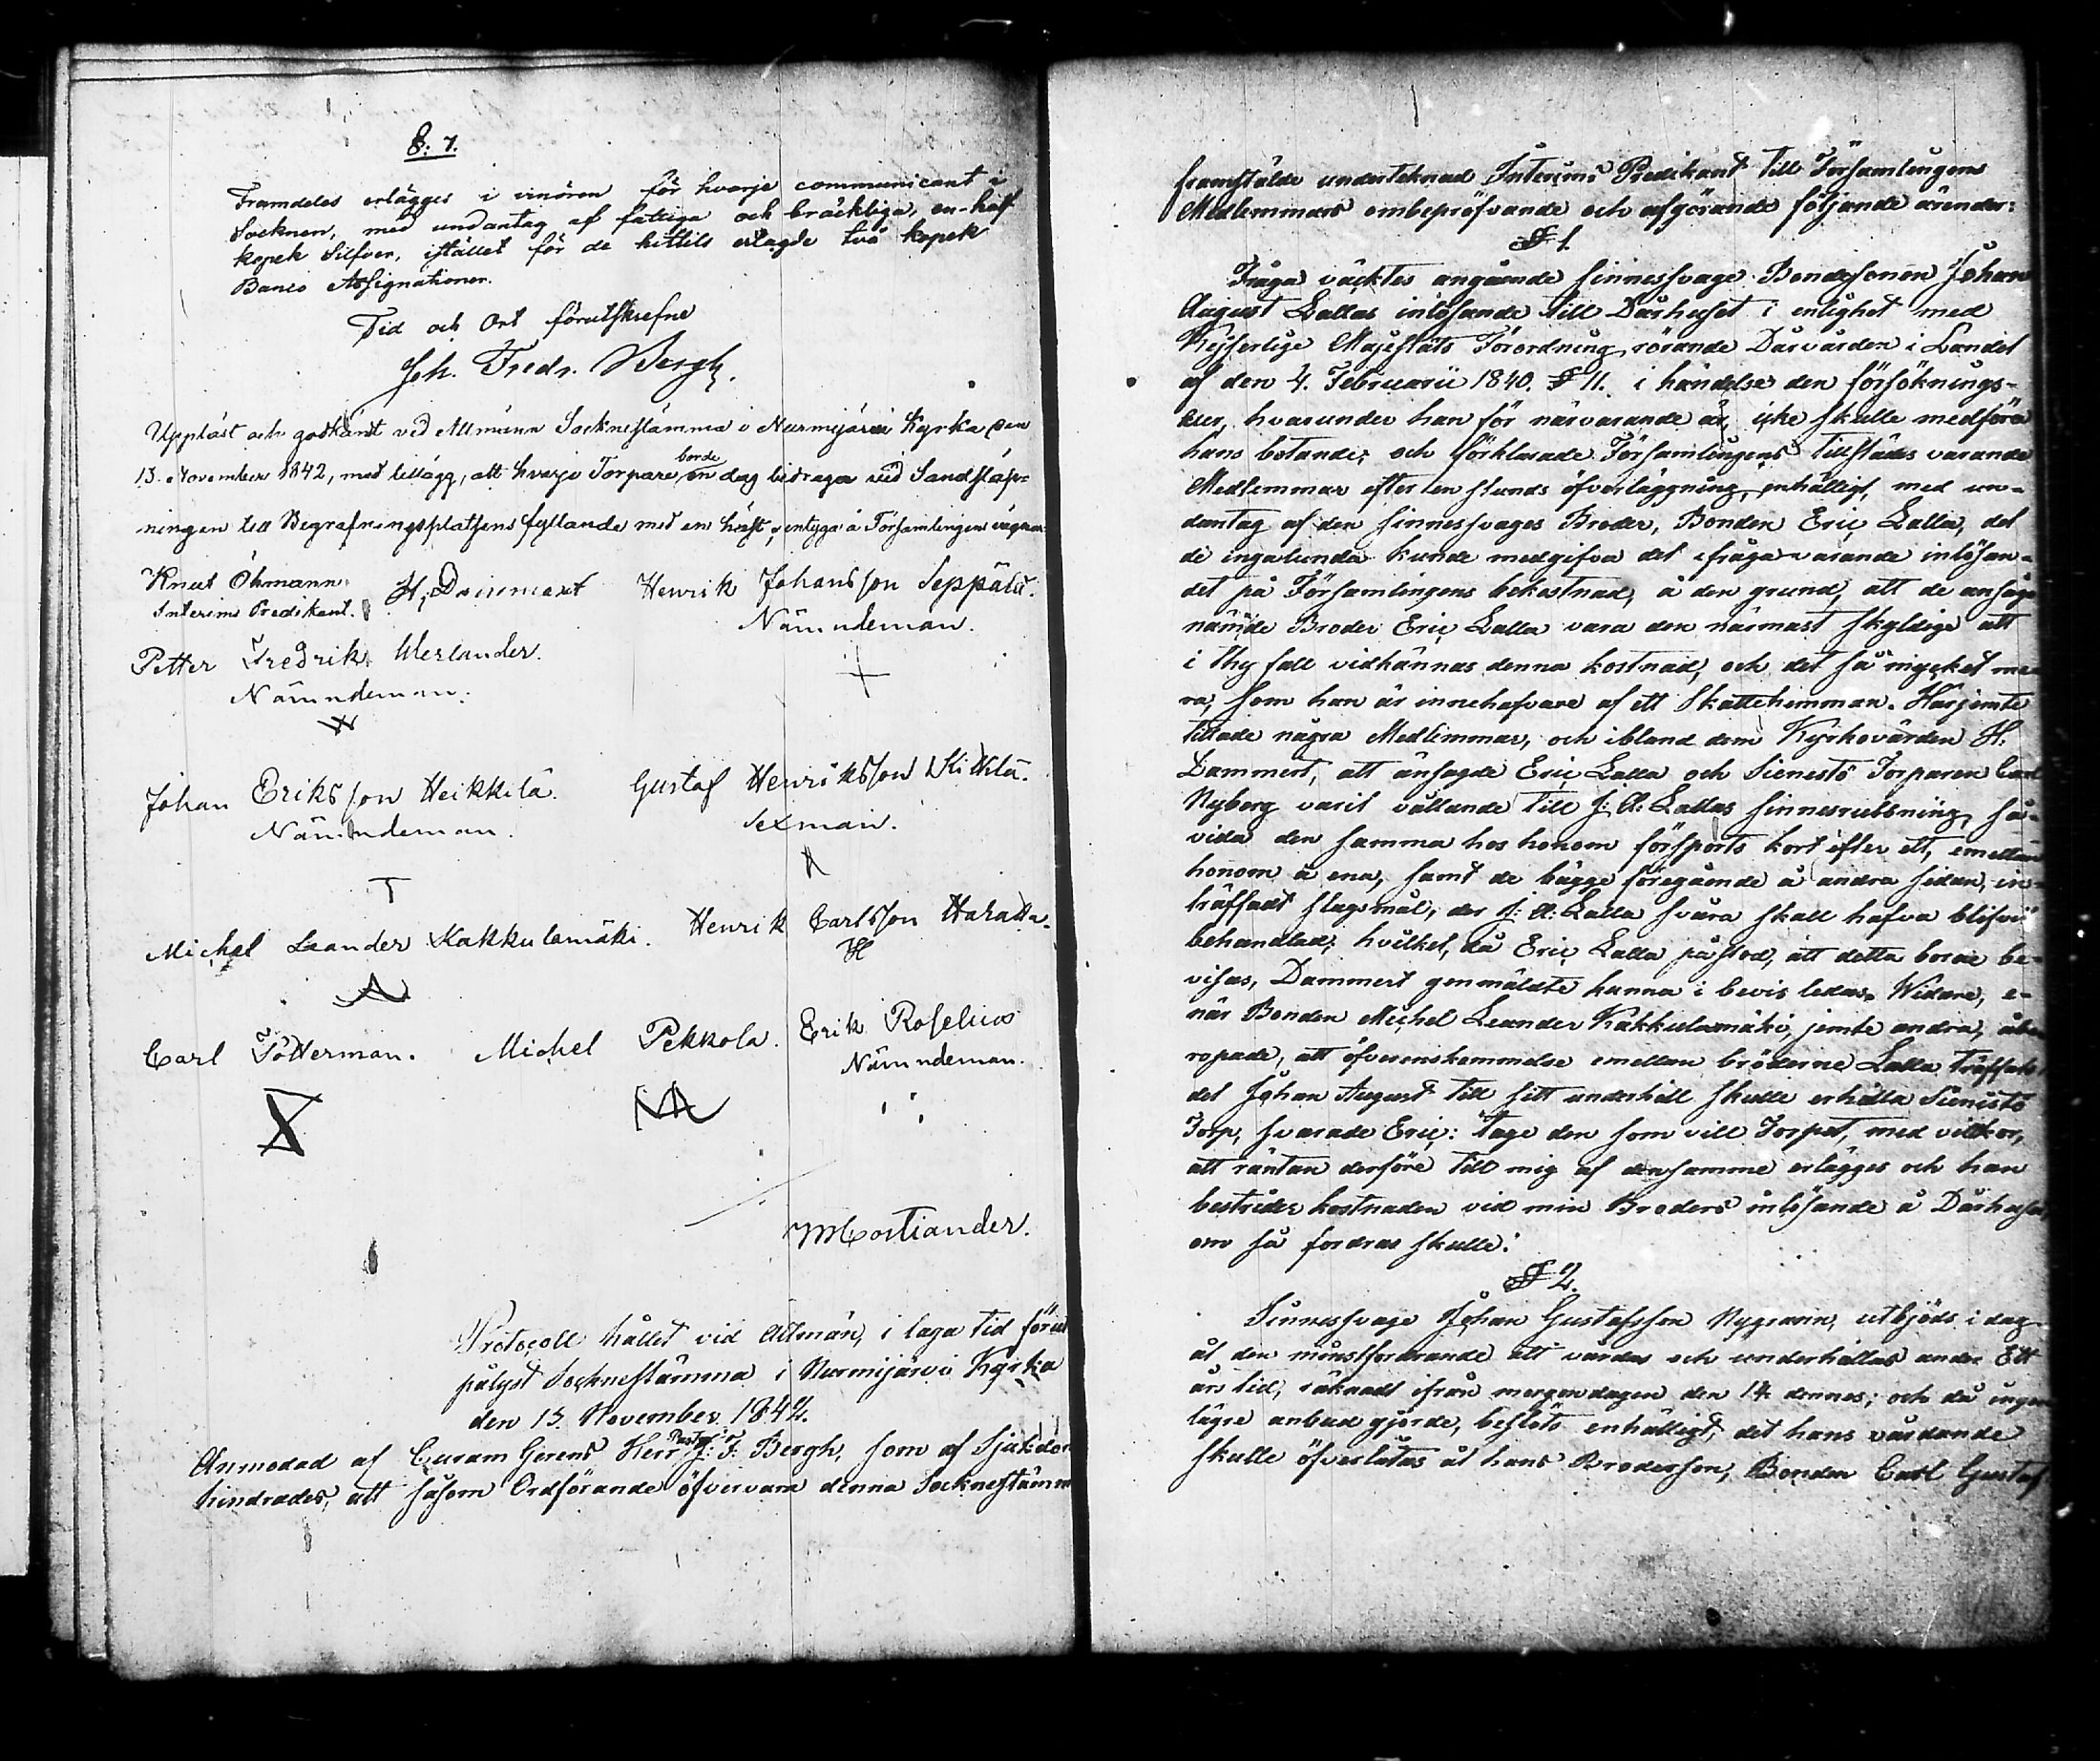 §: 7.
Framdeles erlägges i vinören för hvarje communicant i
Socknen, med undantag af fattiga och bräckliga, en-half
kopek Silfver, istället för de hittils erlagde två kopek
Banco Assignationer.
Tid och Ort förutskrefne
Joh. Fredr. Bergh.
Uppläst och godkänt vid Allmänn Socknestämma i Nurmijärvi Kyrka den
13. November 1842, med tillägg, att hvarje Torpare borde en dag bidraga vid Sandsläp-
ningen till Begrafningsplatsens fyllande med en häst, intyga å Församlingens vägnar
Knut Öhmann
Interims Predikant.
H. Dammert
Henrik Johansson Seppälä.
Nämndeman.
Petter Fredrik Werlander.
Nämndeman.
Johan Eriksson Heikkilä.
Nämndeman.
Gustaf Henriksson Kihlä.
Sexman.
Michel Leander Kakkulamäki.
Henrik Carlsson Hakalla.
H
Carl Fötterman.
Michel Pekkola.
Erik Roselius
Nämndeman.
Costiander.
Protocoll hållet vid Allmän, i laga tid förut
pålyst Socknestämma i Nurmijärvi Kyrka
den 13. November 1842.
Anmodad af Curam Gerens Herr Pastor J: F: Bergh, som af Sjukdom
hindrades, att såsom Ordförande öfvervara denna Socknestämm
framstälde underteknad Interims Predikant till Församlingens
Medlemmars ombepröfvande och afgörande följande ärender:
§ 1.
Fråga väcktes angående sinnessvage Bondesonen Johan
August Lallas inlösande till Dårhuset i enlighet med
Kejserlige Majestäts Förordning rörande Dårvården i Landet
af den 4. Februarii 1840. § 11. i händelse den försöknings-
cur, hvarunder han för närvarande är, icke skulle medföra
hans botande; och förklarade Församlingens tillstädes varande
Medlemmar efter en stunds öfverläggning, enhälligt, med un-
dantag af den sinnessvages Broder, Bonden Eric Lalla, det
de ingalunda kunde medgifva det ifrågavarande inlösan-
det på Församlingens bekostnad, å den grund, att de ansåge
nämde Broder Eric Lalla vara den närmast skyldige att
i thy fall vidkännas denna kostnad, och det så mycket me-
ra, som han är innehafvare af ett Skattehemman. Härjemte
tillade några Medlemmar, och ibland dem Kyrkovärden H.
Dammert, att änsagde Eric Lalla och Sienistö Torparen Carl
Nyberg varit vållande till J: A: Lallas sinnesrubbning, så-
vida den samma hos honom försports kort efter ett, emellan
honom å ena, samt de bägge föregående å andra sidan, in-
träffadt slagsmål, der J: A: Lalla svåra skall hafva blifvit
behandlad; hvilket, då Eric Lalla påstod, att detta borde be-
visas, Dammert genmäldte kunna i bevis ledas. Widare, e-
när Bonden Michel Leander Kakkulamäki, jemte andra, åbe
ropade, att öfverenskommelse emellan bröderne Lalla träffats
det Johan August till sitt underhåll skulle erhålla Sienistö
Torp, svarade Eric: Tage den som vill Torpet, med vilkor,
att räntan derföre till mig af densamme erlägges och han
bestrider kostnaden vid min Broders inlösande å Dårhuset
om så fordras skulle.
§ 2.
Sinnessvage Johan Gustafsson Nygrann, utbjöds i dag
åt den minstfordrande att vårdas och underhållas under Ett
års tid, räknadt ifrån morgondagen den 14 dennes; och då ingen
lägre anbud gjorde, beslöts enhälligt, det hans vårdande
skulle öfverlåtas åt hans Broderson, Bonden Carl Gustaf